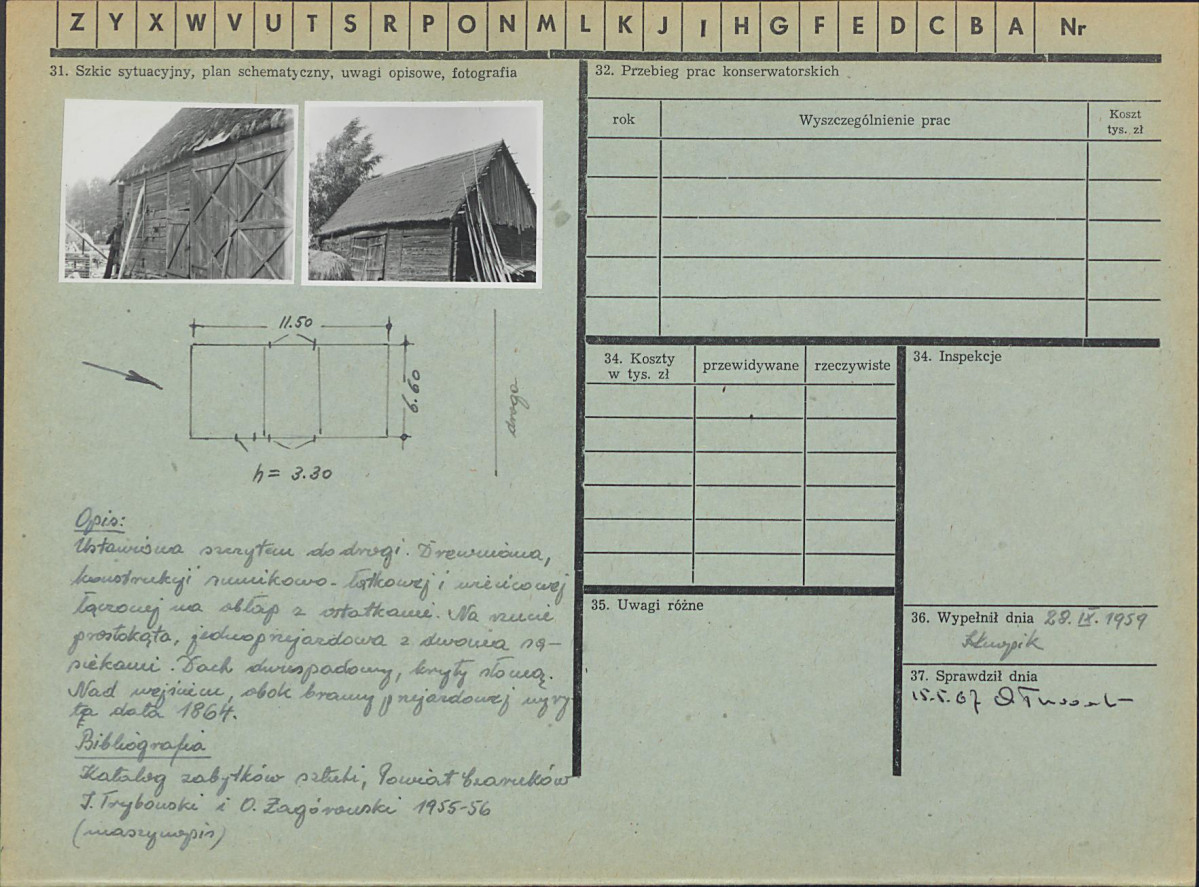 Z Y X W V U T S R P O N M L K J I H G F E D C B A Nr
31. Szkic sytuacyjny, plan schematyczny, uwagi opisowe, fotografia
11.50
6.60
droga
h = 3.30
Opis:
Ustawiona szczytem do drogi. Drewniana,
konstrukcji sumikowo-łątkowej i wieńcowej
łączonej na obłap z ostatkami. Na rzucie
prostokąta, jednoprzejazdowa z dwoma są-
siekami. Dach dwuspadowy, kryty słomą.
Nad wejściem, obok bramy przejazdowej wyry-
ta data 1864.
Bibliografia
Katalog zabytków sztuki, Powiat Czarnków
J. Trybowski i O. Zagórowski 1955-56
(maszynopis)
32. Przebieg prac konserwatorskich
rok Wyszczególnienie prac Koszt
tys. zł
34. Koszty
w tys. zł przewidywane rzeczywiste
34. Inspekcje
35. Uwagi różne
36. Wypełnił dnia 28.IX.1959
37. Sprawdził dnia
15.5.67